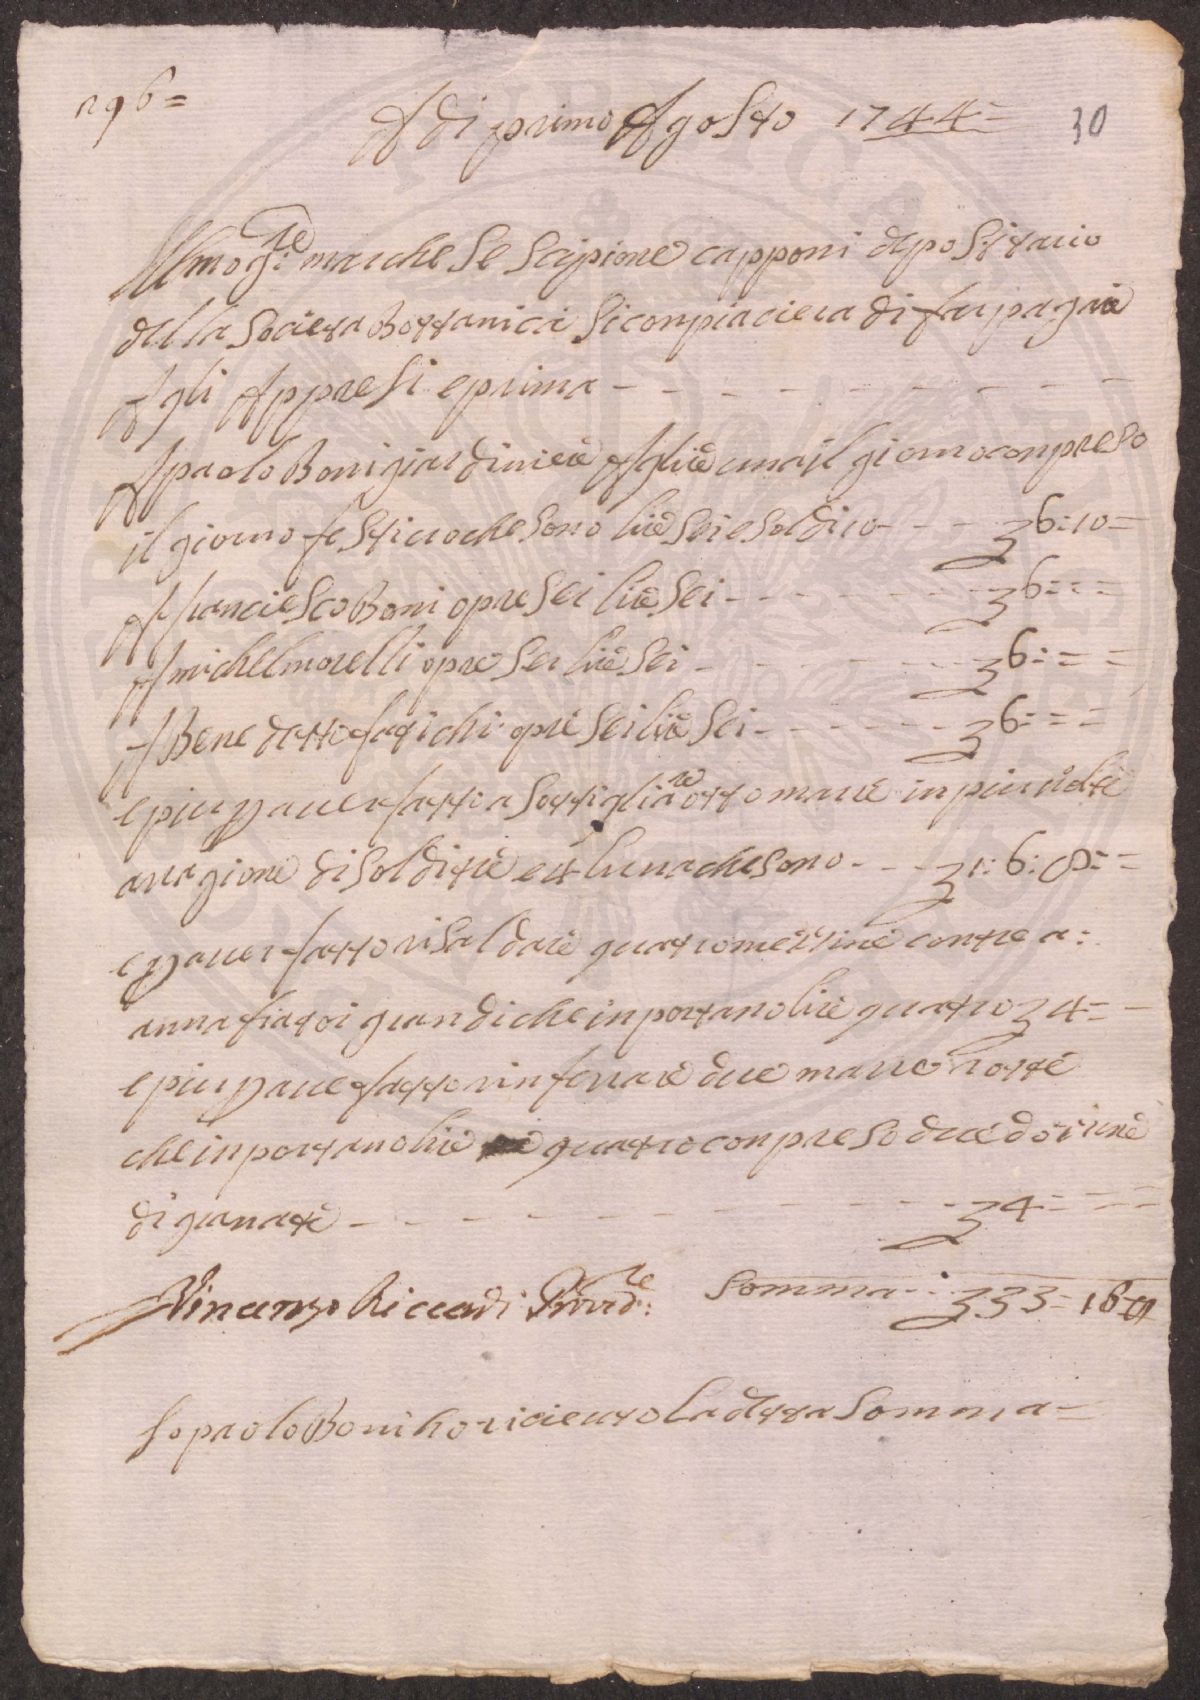 196=
A di primo Agosto 1744=
30
Illmo Sig.re marchese Scipione capponi depositario
della Societa Bottanica Si conpiaciera di far pagare
A gli Appresi e prima - - - - - - - - -
A paolo Boni giardiniere A lire una il giorno conpreso
il giorno festiuo che sono lire sei e soldi 10 - - - £ 6:10=
A franciesco Boni opre sei lire sei - - - - - - £ 6:= =
A michel morelli opre sei lire sei - - - - - - £ 6:= =
A Benedetto fatichi opre sei lire sei - - - - - £ 6:= =
e piu p auer fatto asottigliare otto marre in piu uolte
a ragione di soldi tre e 4 l una che sono - - - £ 1:6:8:=
e p auer fatto risaldare quatro mezzine con tre a:
annafiatoi grandi che inportano lire quatro £ 4= -
e piu p aue fatto rinferrare due marre rotte
che inportano lire quatro conpreso due dozzine
di granate - - - - - - - - - £ 4:= = =
Vincenzo Riccardi Provd.re: Somma:. £ 33=16=8
Io paolo Boni ho riceuto la detta Somma=